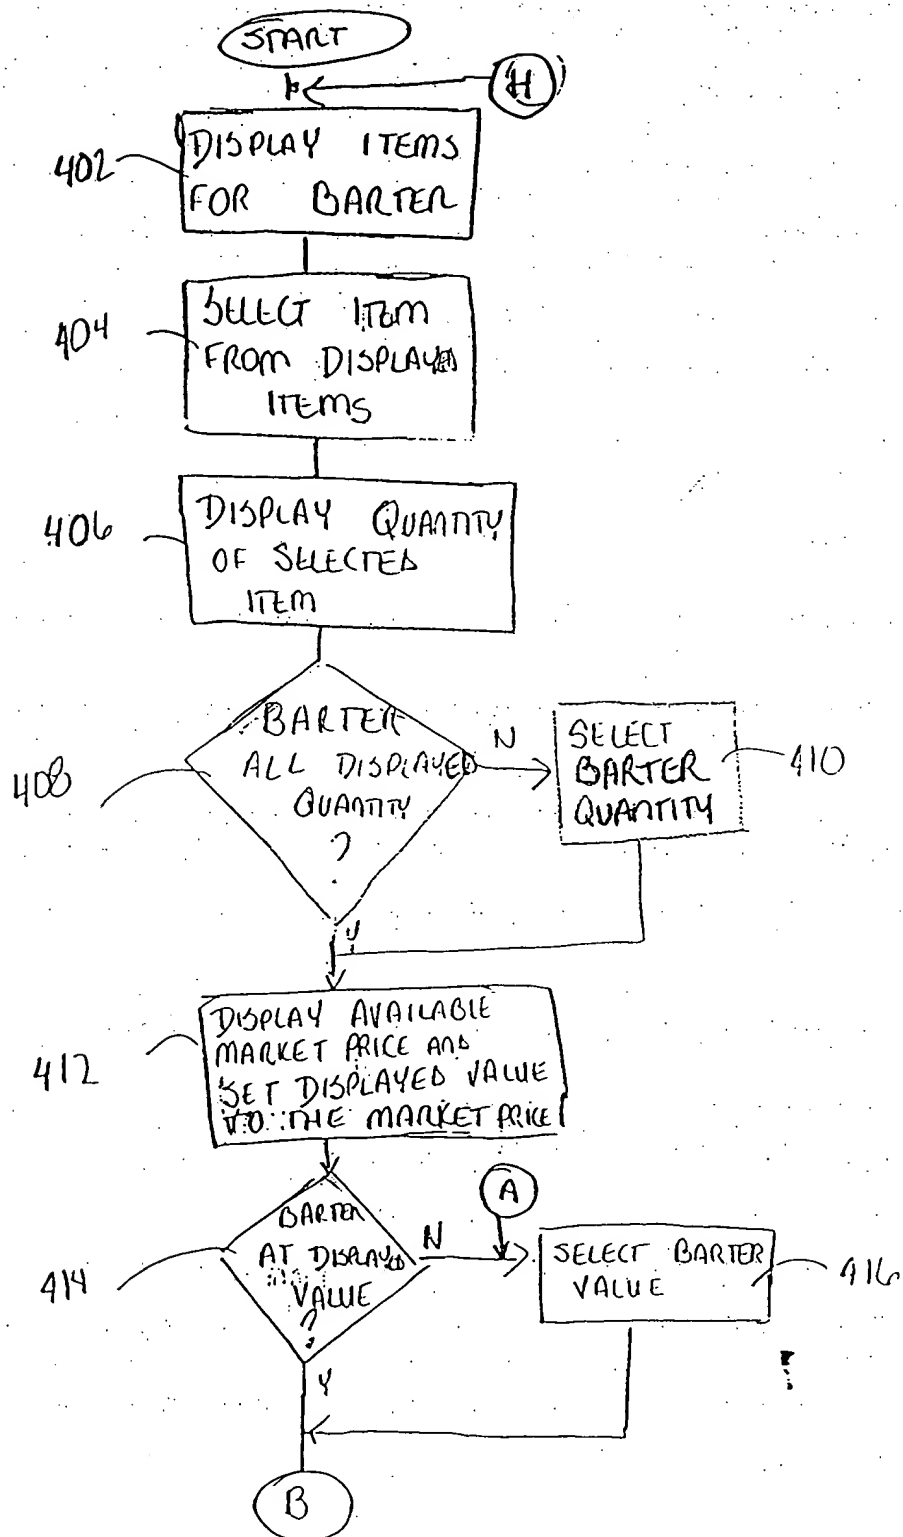 START
H
402
DISPLAY ITEMS
FOR BARTER
404
SELECT ITEM
FROM DISPLAYED
ITEMS
406
DISPLAY QUANTITY
OF SELECTED
ITEM
408
BARTER
ALL DISPLAYED
QUANTITY
?
N
SELECT
BARTER
QUANTITY
410
Y
412
DISPLAY AVAILABLE
MARKET PRICE AND
SET DISPLAYED VALUE
TO THE MARKET PRICE
A
414
BARTER
AT DISPLAYED
VALUE
?
N
SELECT BARTER
VALUE
416
Y
B